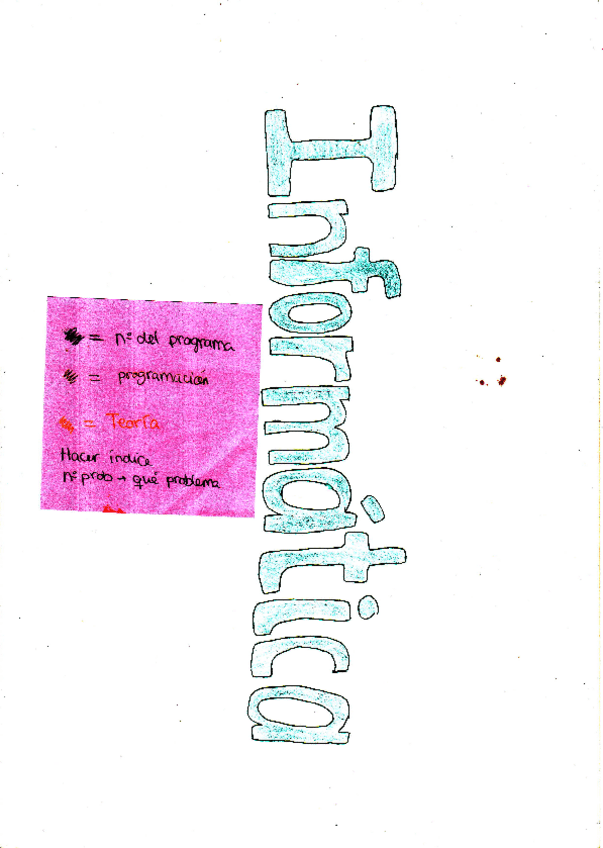 Informática
= nº del programa
= programación
= Teoría
Hacer índice
nº prob → qué problema